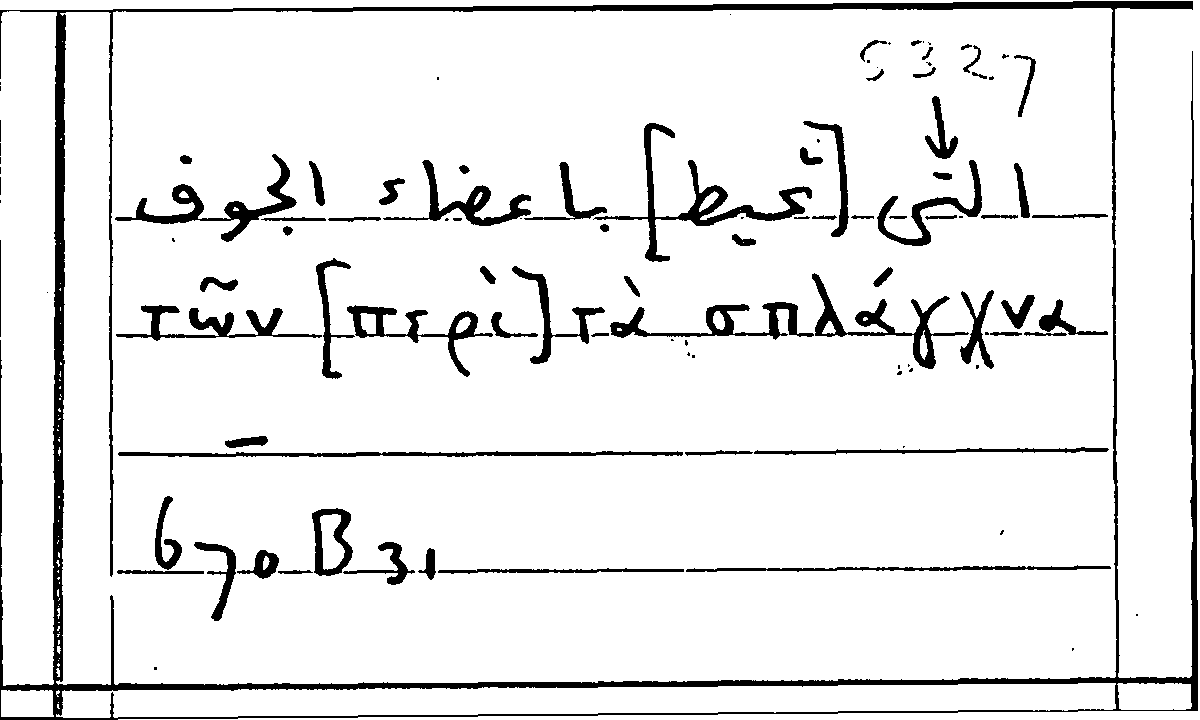 5327
↓
التى [تحيط] باعضاء الجوف
τῶν [περὶ] τὰ σπλάγχνα
–
670 B 31